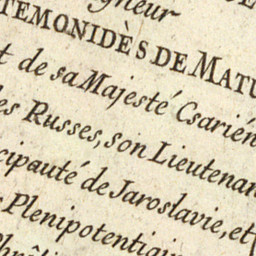 gneur
TEMONIDÈS DE MATU
t de sa Majesté Csarién
es Russes, son Lieutenan
cipauté de Jaroslavie, et
Plenipotentiair